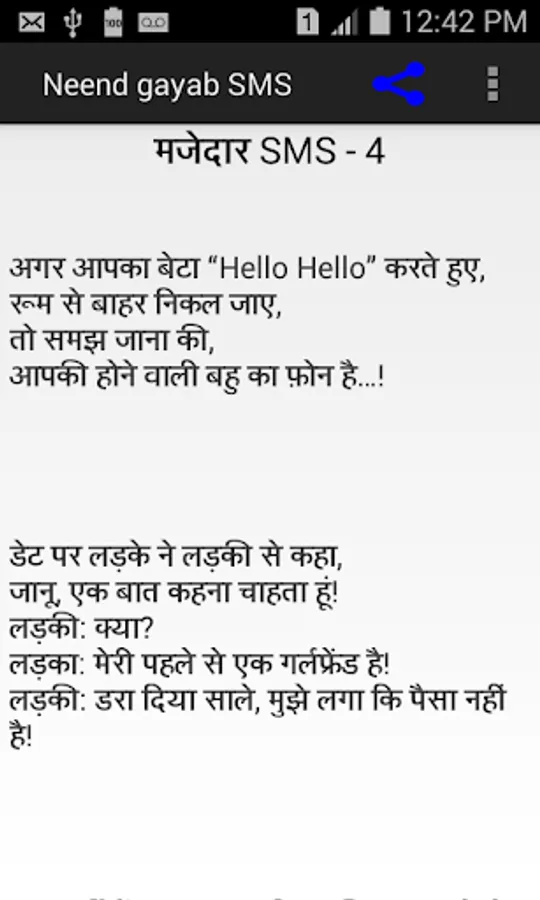 100
1
12:42 PM
Neend gayab SMS
मजेदार SMS - 4
अगर आपका बेटा “Hello Hello” करते हुए,
रूम से बाहर निकल जाए,
तो समझ जाना की,
आपकी होने वाली बहु का फ़ोन है...!
डेट पर लड़के ने लड़की से कहा,
जानू, एक बात कहना चाहता हूं!
लड़की: क्या?
लड़का: मेरी पहले से एक गर्लफ्रेंड है!
लड़की: डरा दिया साले, मुझे लगा कि पैसा नहीं
है!